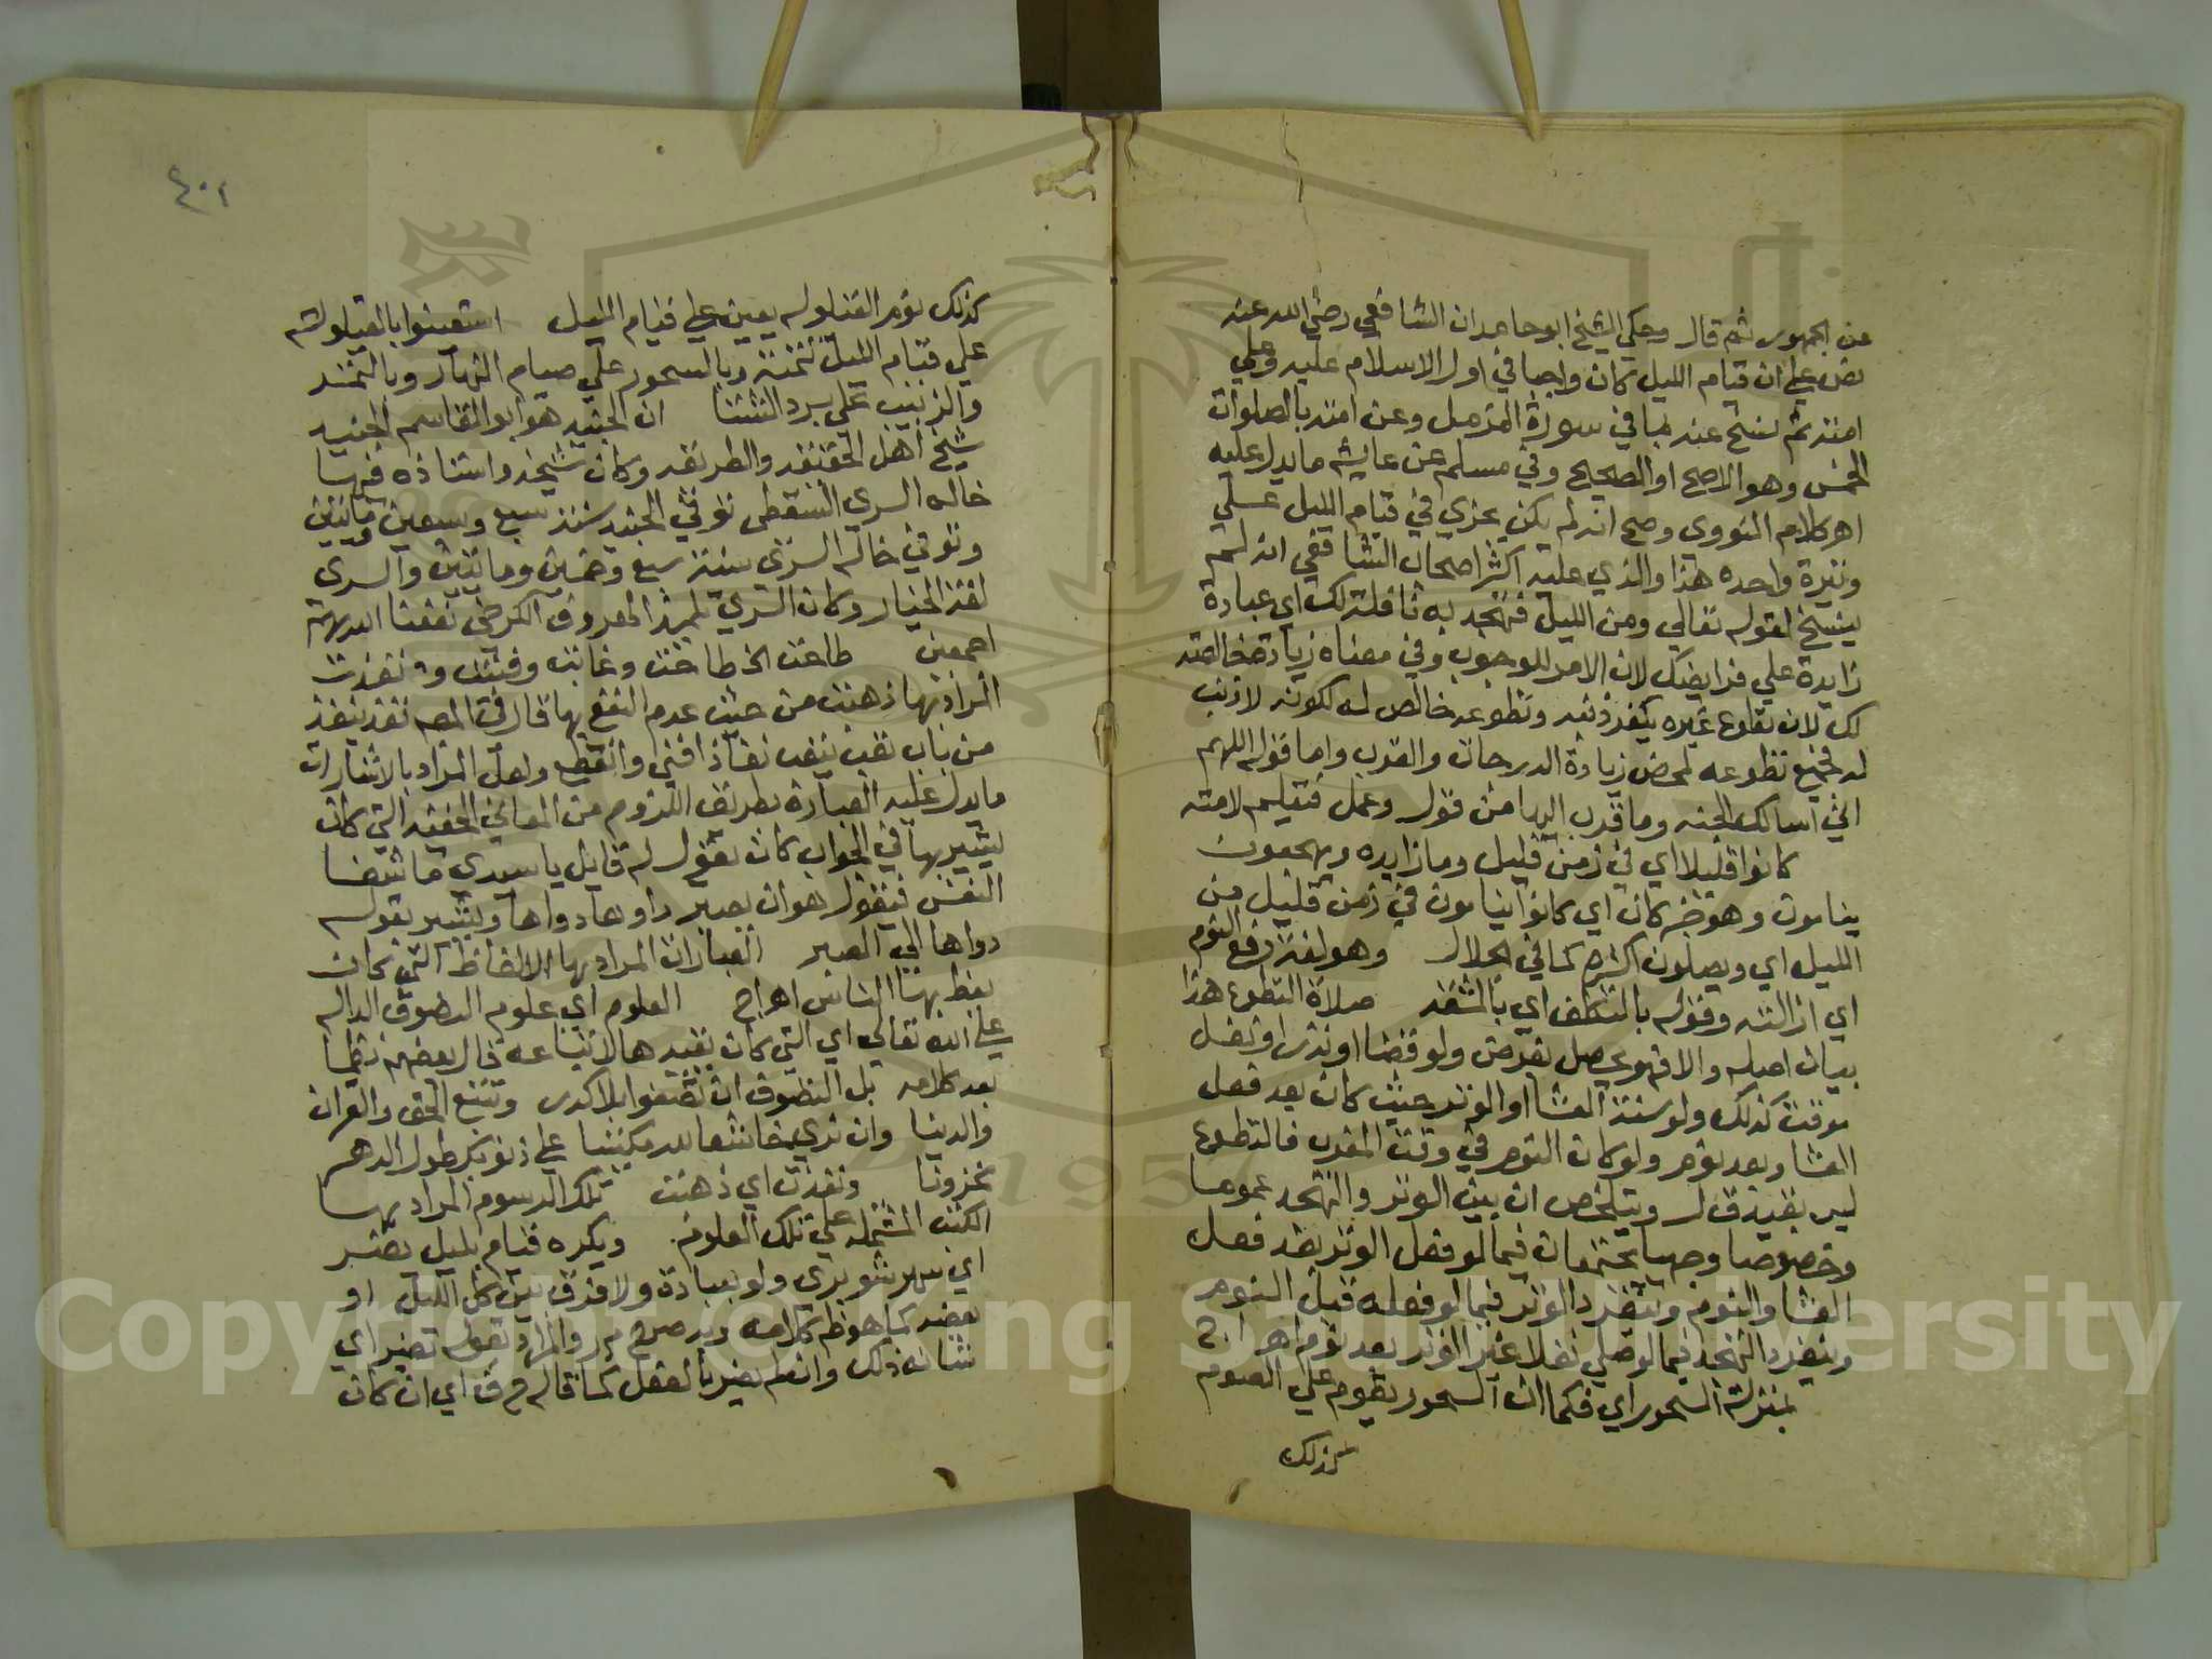 عن الجمهور ثم قال وحكى الشيخ ابو حامد ان الشافعي رضي الله عنه
نص على ان قيام الليل كان واجبا في اول الاسلام عليه وعلى
امته ثم نسخ عنه بما في سورة المزمل وعن امته بالصلوات
الخمس وهو الاصح او الصحيح وفي مسلم عن عايشه ما يدل عليه
اهر كلام النووى وصح انه لم يكن يجزي في قيام الليل على
وتيرة واحده هذا والذي عليه اكثر اصحاب الشافعي انه لم
ينسخ لقوله تعالي ومن الليل فتهجد به نافلة لك اي عبادة
زايدة علي فرايضك لان الامر للوجوب وفي معناه زيادة خالصة
لك لان تطوع غيره يكفر ذنبه وتطوعه خالص له لكونه لا ذنب
له فجميع تطوعه لمحض زيادة الدرجات والقرب واما قوله اللهم
اني اسالك الجنه وما قرب اليها من قول وعمل فتعليم لامته
كانوا قليلا اي في زمن قليل وما زايده ويهجعون
ينامون وهو خبر كان اي كانوا ينامون في زمن قليل من
الليل اي ويصلون اكثره كما في الجلال وهو لغة رفع النوم
اي ازالته وقوله بالتكلف اي بالمشقه صلاة التطوع هذا
بيان اصله والا فهو يحصل بفرض ولو قضا او نذرا ونفل
موقت كذلك ولو سنة العشا او الوتر حيث كان بعد فعل
العشا وبعد نوم ولو كان النوم في وقت المغرب فالتطوع
ليس بقيد ق ل ويتلخص ان بين الوتر والتهجد عموما
وخصوصا وجهيا يجتمعان فيما لو فعل الوتر بعد فعل
العشا والنوم وينفرد الوتر فيما لو فعله قبل النوم
وينفرد التهجد فيما لو صلي نفلا غير الوتر بعد نوم اهر اج
بمنزلة السحور اي فكما ان السحور يقوم علي الصوم
كذلك
٤٠١
كذلك نوم القيلوله يعين على قيام الليل استعينوا بالقيلولة
علي قيام الليل وبالسحور علي صيام النهار وبالتمر
والزبيب علي برد الشتا ان الجنيد هو ابو القاسم الجنيد
شيخ اهل الحقيقه والطريقه وكان شيخه واستاذه فيها
خاله السري السقطي توفي الجنيد سنة سبع وتسعين ومايتين
وتوفي خاله السري سنة سبع وخمسين ومايتين والسري
لغة الخيار وكان السري تلميذ المعروف الكرخي نفعنا الله بهم
اجمعين طاحت الخ طاحت وغابت وفنيت ونفذت
المراد بها ذهبت من حيث عدم النفع بها قال في المص نفد ينفد
من باب تعب ينفد نفاذا فني وانقطع ولعل المراد بالاشارات
ما يدل عليه العبارة بطريق اللزوم من المعاني الخفيه التي كان
يشير بها في الجواب كان يقول له قايل يا سيدي ما شفا
النفس فيقول هو ان يصير داوها دواها ويشير بقوله
دواها الي الصبر العبارات المراد بها الالفاظ التي كان
يعظ بها الناس اهر اج العلوم اي علوم التصوف الداله
على الله تعالي اي التي كان يفيدها لاتباعه قال بعضهم نظما
بعد كلامه بل التصوف ان تصفوا بلا كدر وتتبع الحق والقران
والدينا وان تري خاشعا لله مكتئبا على ذنوبك طول الدهر
محزونا ونفدت اي ذهبت تلك الرسوم المراد بها
الكتب المشتمله على تلك العلوم. ويكره قيام بليل يضر
اي سهر ولو بعبادة ولا فرق بين كل الليل او
بعضه كما هو ظ كلامه وبه صرح م ر والمراد بقوله تضر اي
شانه ذلك وان لم يضر بالفعل كما قاله ح ف اي ان كان